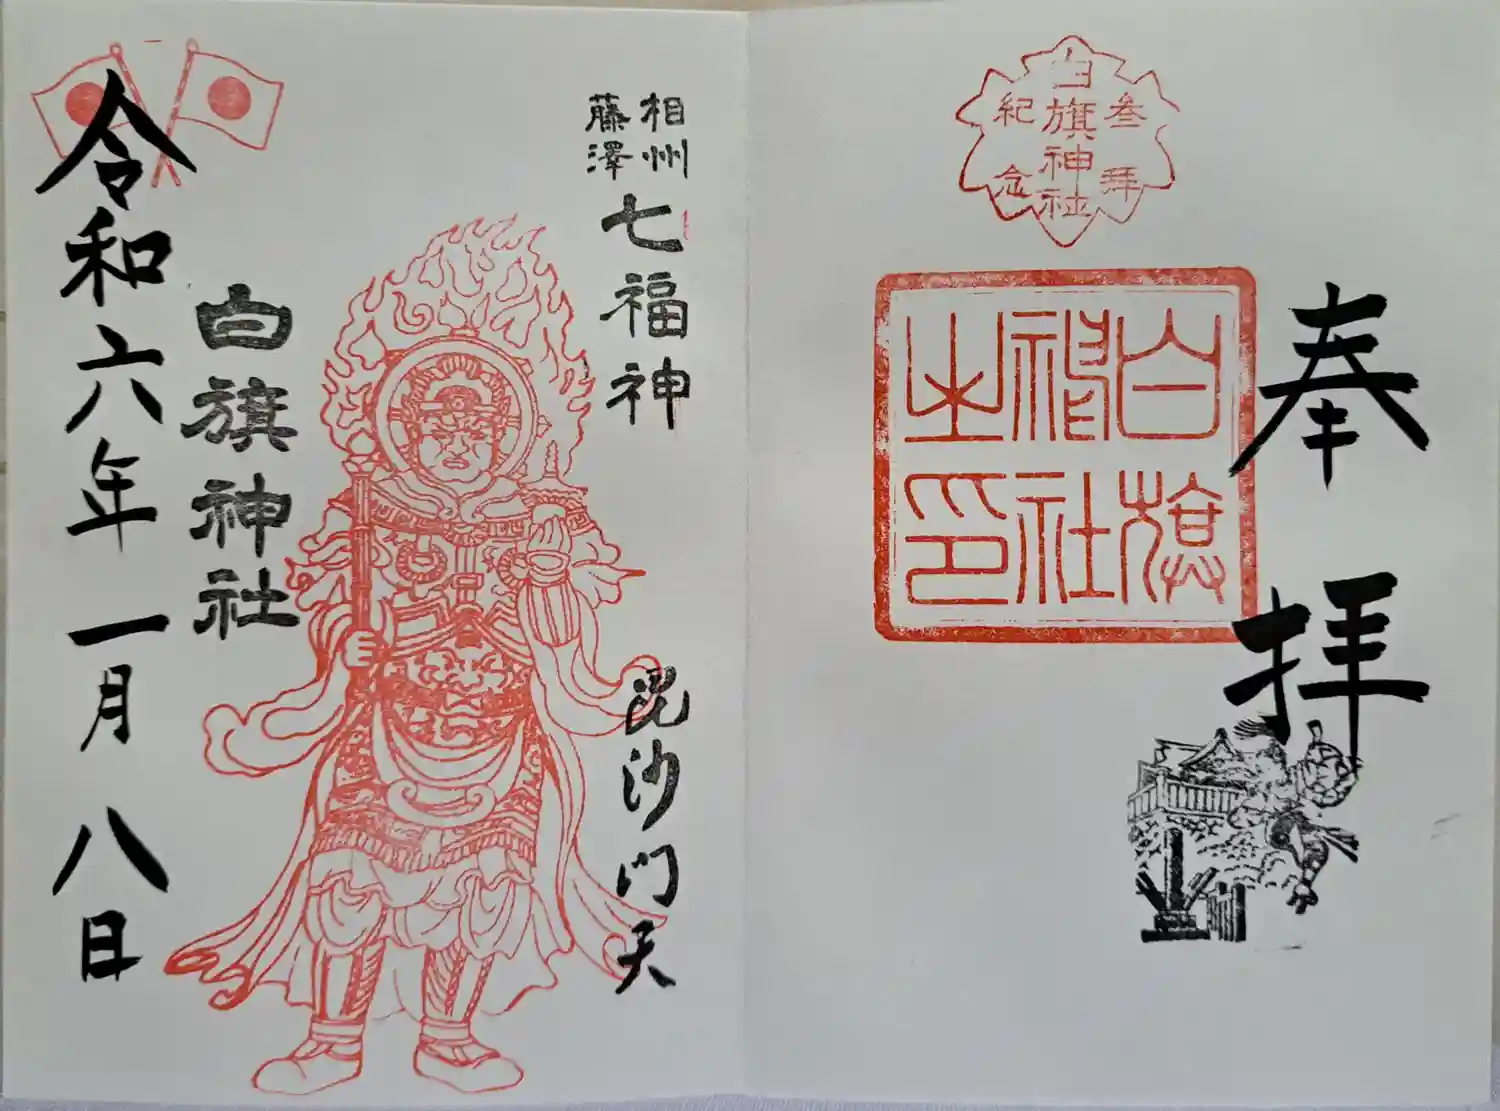 奉拝
白旗神社
叁拝
紀念
白旗
神社
之印
相州
藤澤
七福神
毘沙門天
白旗神社
令和六年一月八日